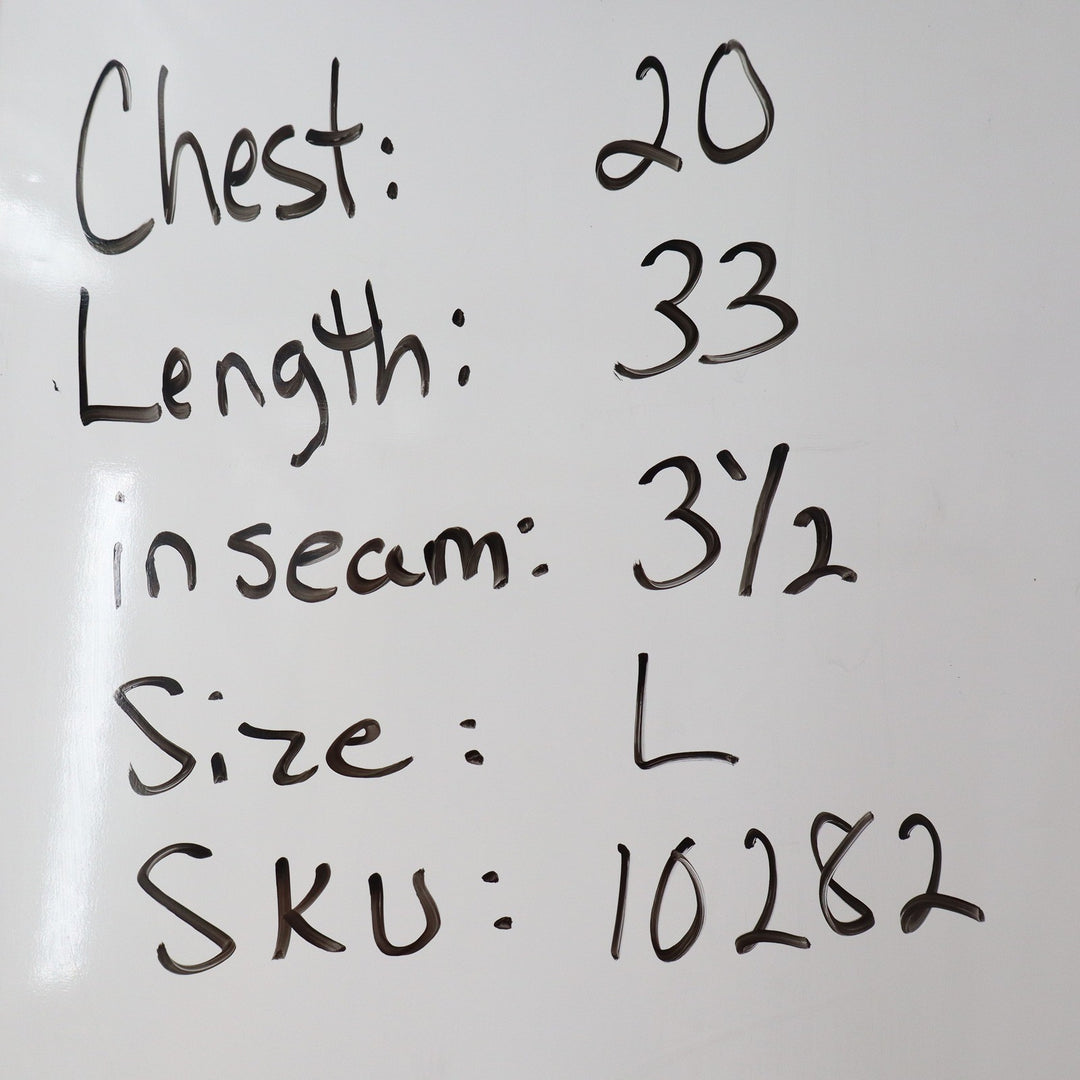 Chest: 20
Length: 33
inseam: 3 1/2
Size: L
SKU: 10282